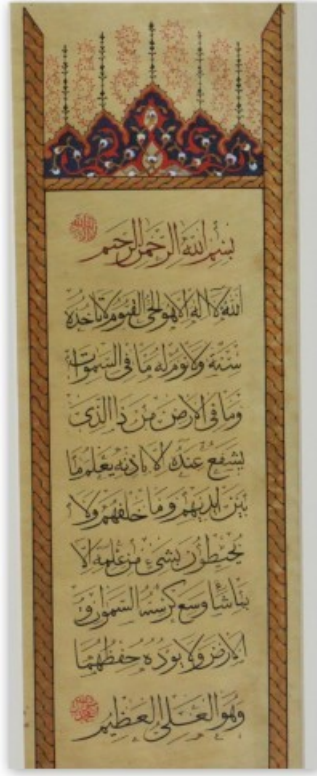 بسم الله الرحمن الرحيم
الله لا اله الا هو الحي القيوم لا تاخذه
سنة ولا نوم له ما في السموات
وما في الارض من ذا الذي
يشفع عنده الا باذنه يعلم ما
بين ايديهم وما خلفهم ولا
يحيطون بشيء من علمه الا
بما شاء وسع كرسيه السموات و
الارض ولا يوده حفظهما
وهو العلي العظيم